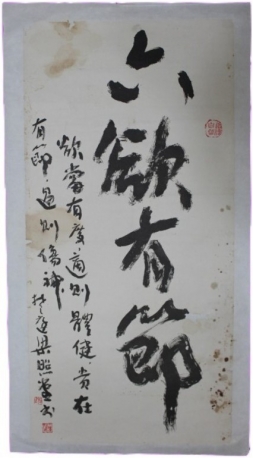 六欲有節
欲當有度適則體健貴在
有節過則傷神
梁照堂书